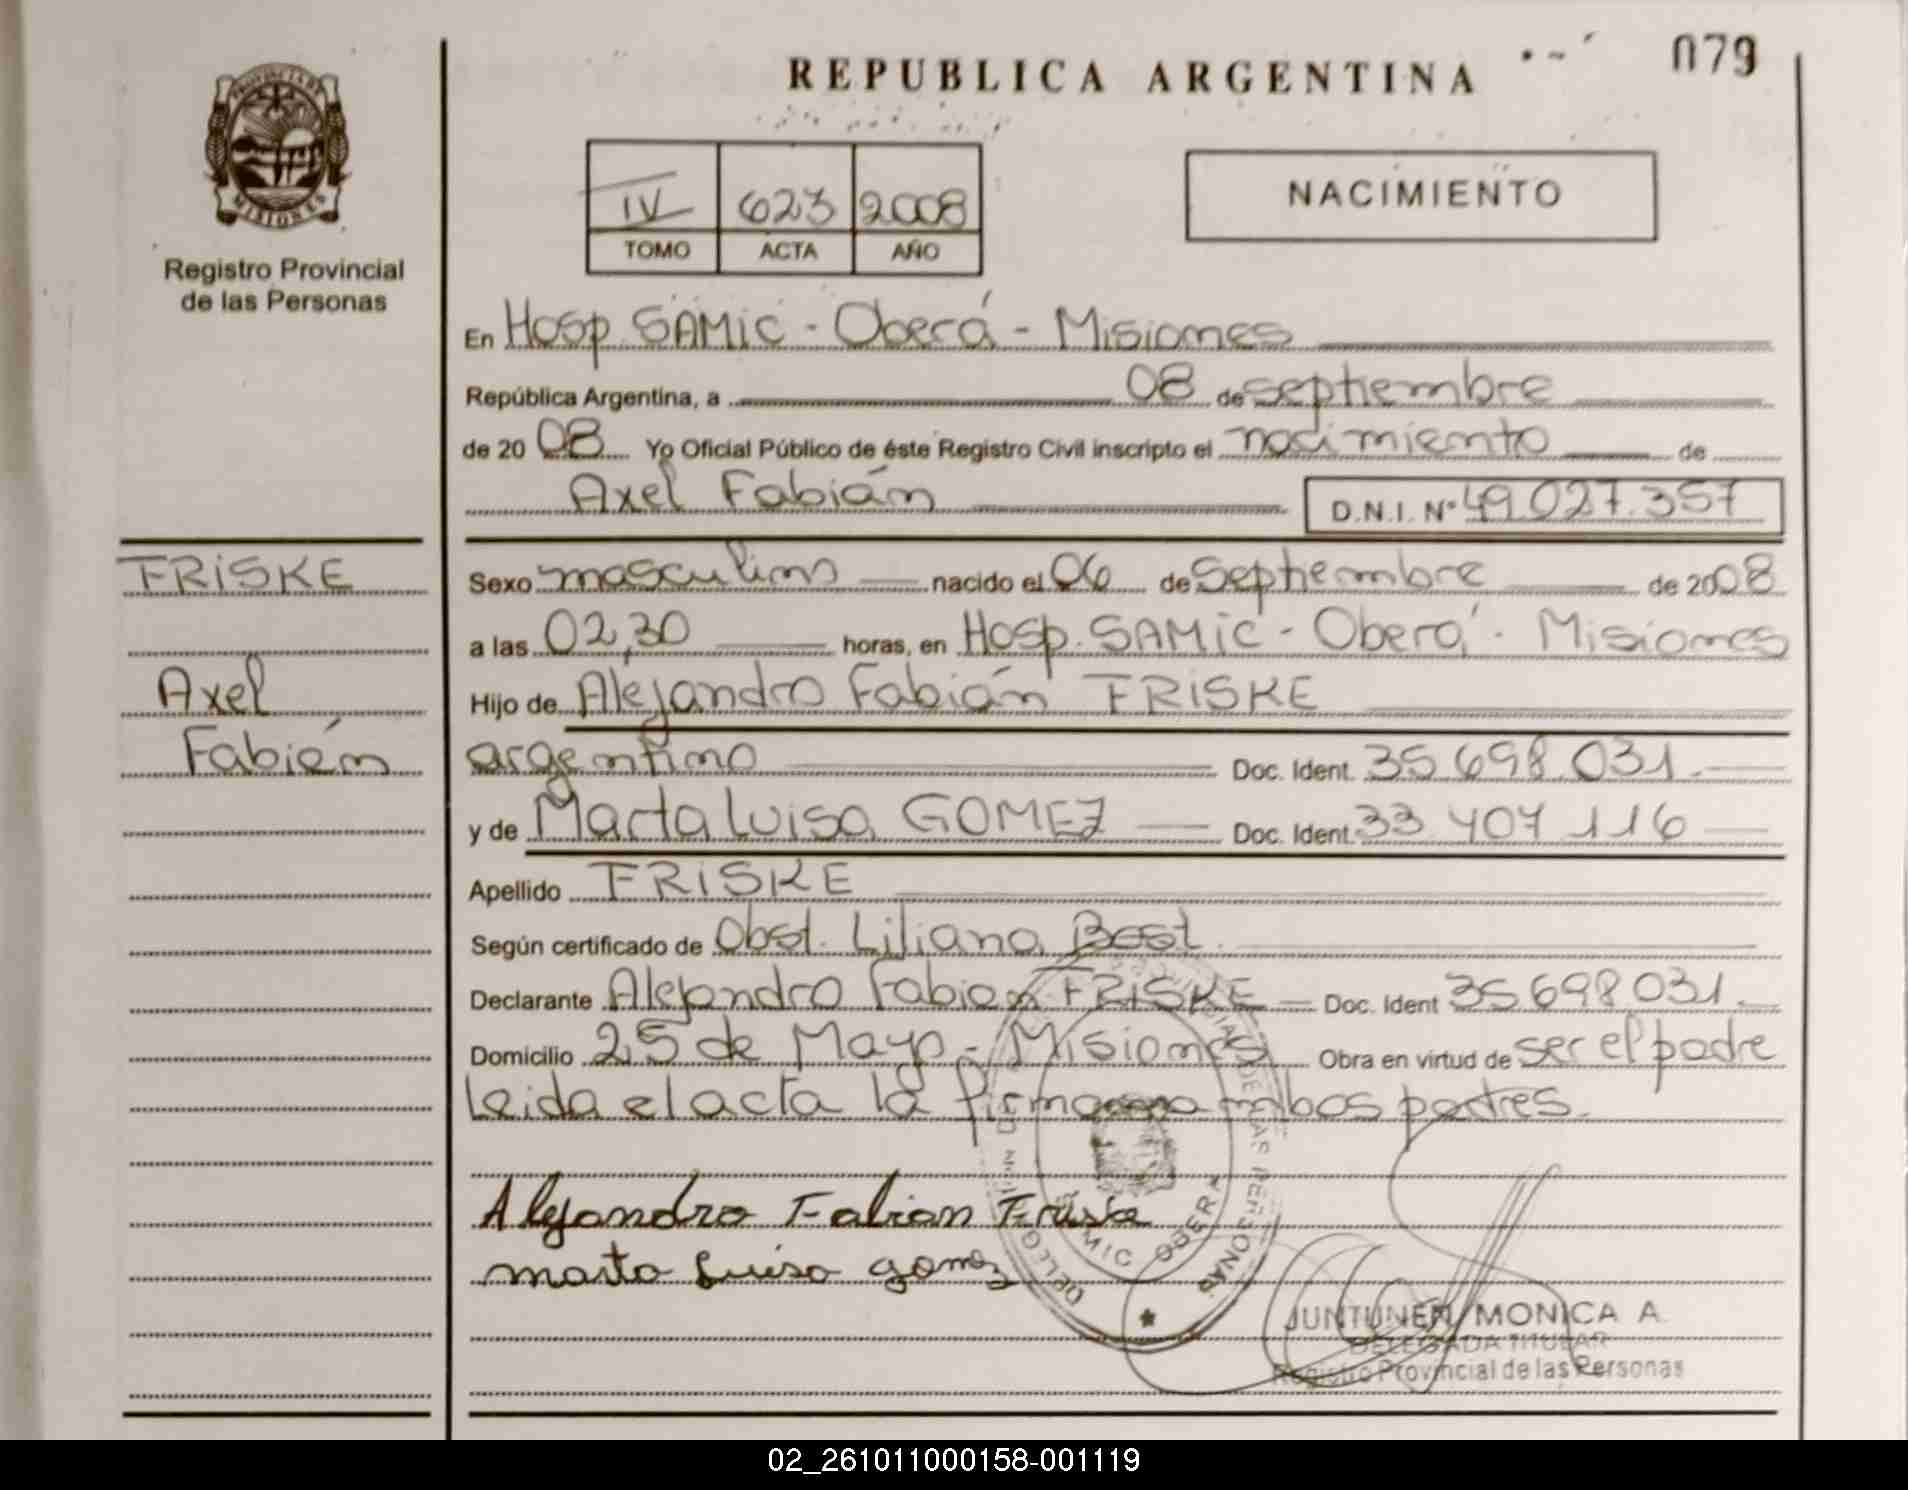 REPUBLICA ARGENTINA
079
PROVINCIA DE
MISIONES
Registro Provincial
de las Personas
IV 623 2008
TOMO ACTA AÑO
NACIMIENTO
En Hosp. SAMIC - Oberá - Misiones
República Argentina, a 08 de septiembre
de 20 08 Yo Oficial Público de éste Registro Civil inscripto el nacimiento de
Axel Fabián D.N.I. Nº 49.027.357
FRISKE
Axel
Fabián
Sexo masculino nacido el 06 de septiembre de 2008
a las 02,30 horas, en Hosp. SAMIC - Oberá - Misiones
Hijo de Alejandro Fabián FRISKE
argentino Doc. Ident. 35.698.031.
y de Marta Luisa GOMEZ Doc. Ident. 33.407.116
Apellido FRISKE
Según certificado de Obst. Liliana Best.
Declarante Alejandro Fabian FRISKE Doc. Ident 35.698.031.
Domicilio 25 de Mayo - Misiones Obra en virtud de ser el padre
Leida el acta la firman ambos padres.
Alejandro Fabian Friske
marta Luisa gomez
SAMIC OBERA
JUNTUNEN MONICA A.
DELEGADA TITULAR
Registro Provincial de las Personas
02_261011000158-001119